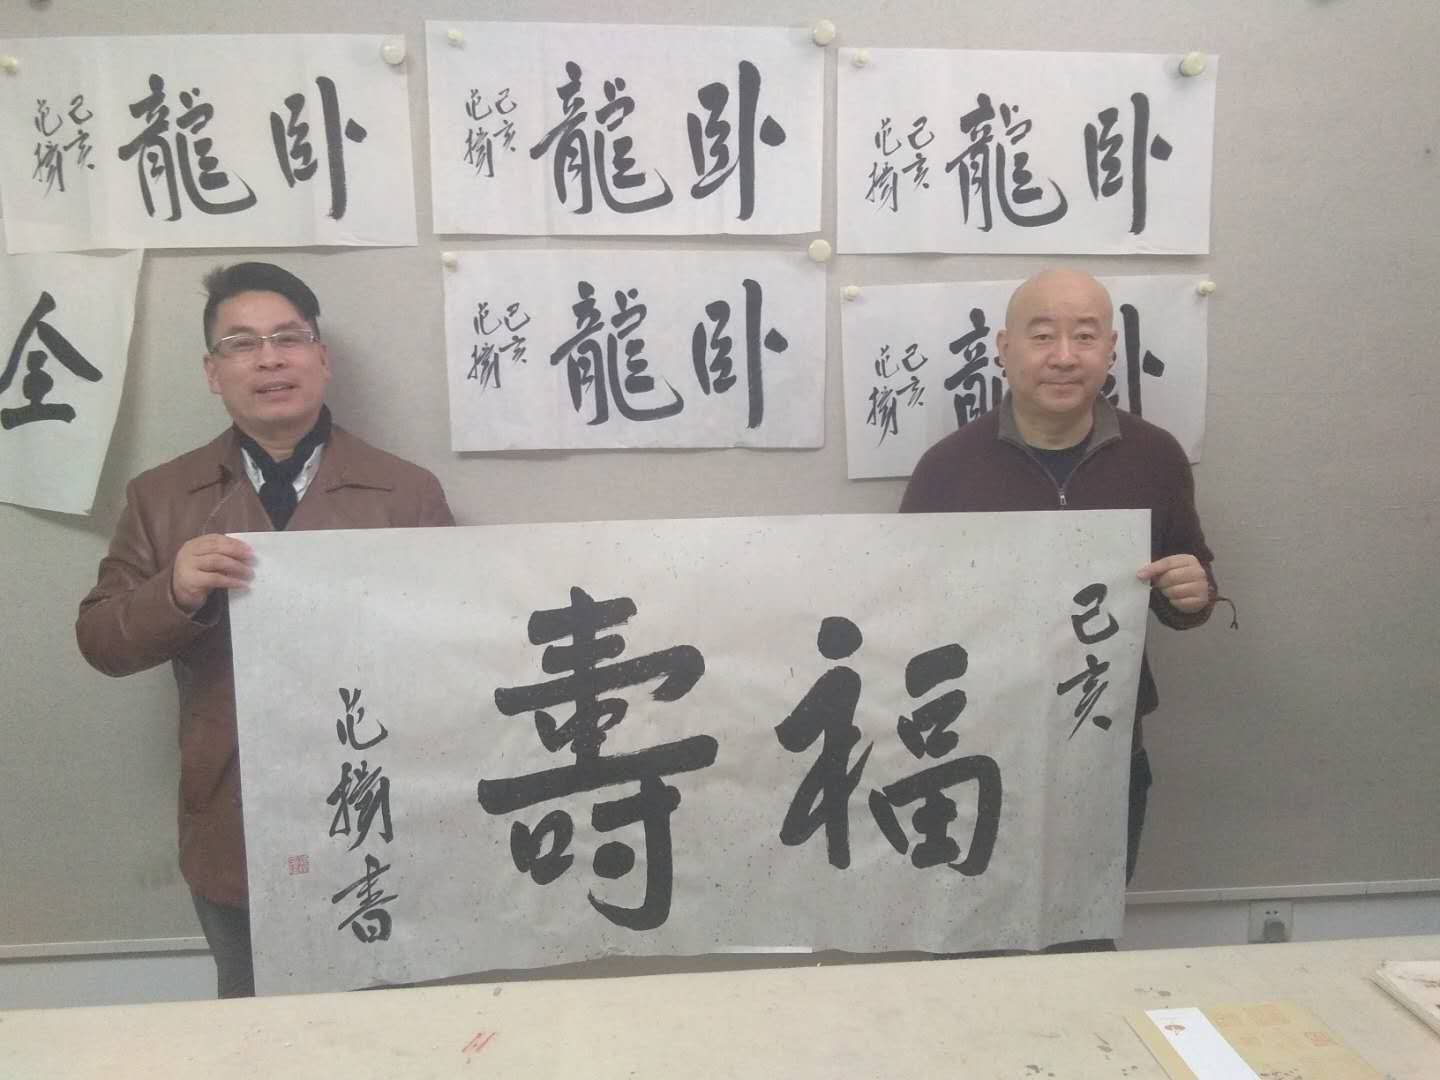 卧龍
己亥
范
卧龍
己亥
范
卧龍
己亥
范
全
卧龍
己亥
范
卧龍
己亥
范
己亥
福壽
范
書